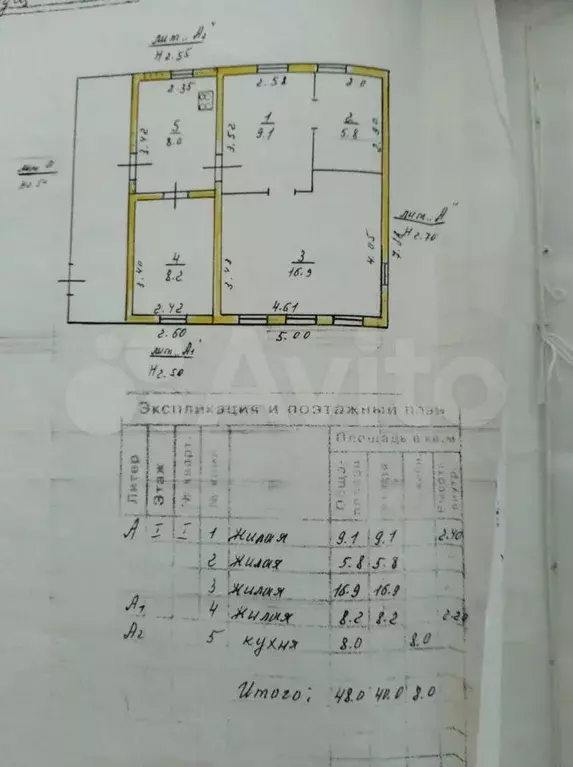 лит. „А2"
Н 2.55
2.35
2.52
2.0
5
8.0
1
9.1
2
5.8
3.42
3.52
2.90
лит.
лит. „А"
Н 2.70
4
8.2
3
16.9
4.05
3.40
3.43
2.42
4.61
2.60
5.00
лит. „А1"
Н 2.50
Avito
Экспликация и поэтажный план
Литер Этаж № кварт. Площадь в кв.м
Обща- площади Высота внутр.
А I I 1 Жилая 9.1 9.1 2.40
2 Жилая 5.8 5.8
3 Жилая 16.9 16.9
А1 4 Жилая 8.2 8.2 2.20
А2 5 кухня 8.0 8.0
Итого: 48.0 40.0 8.0